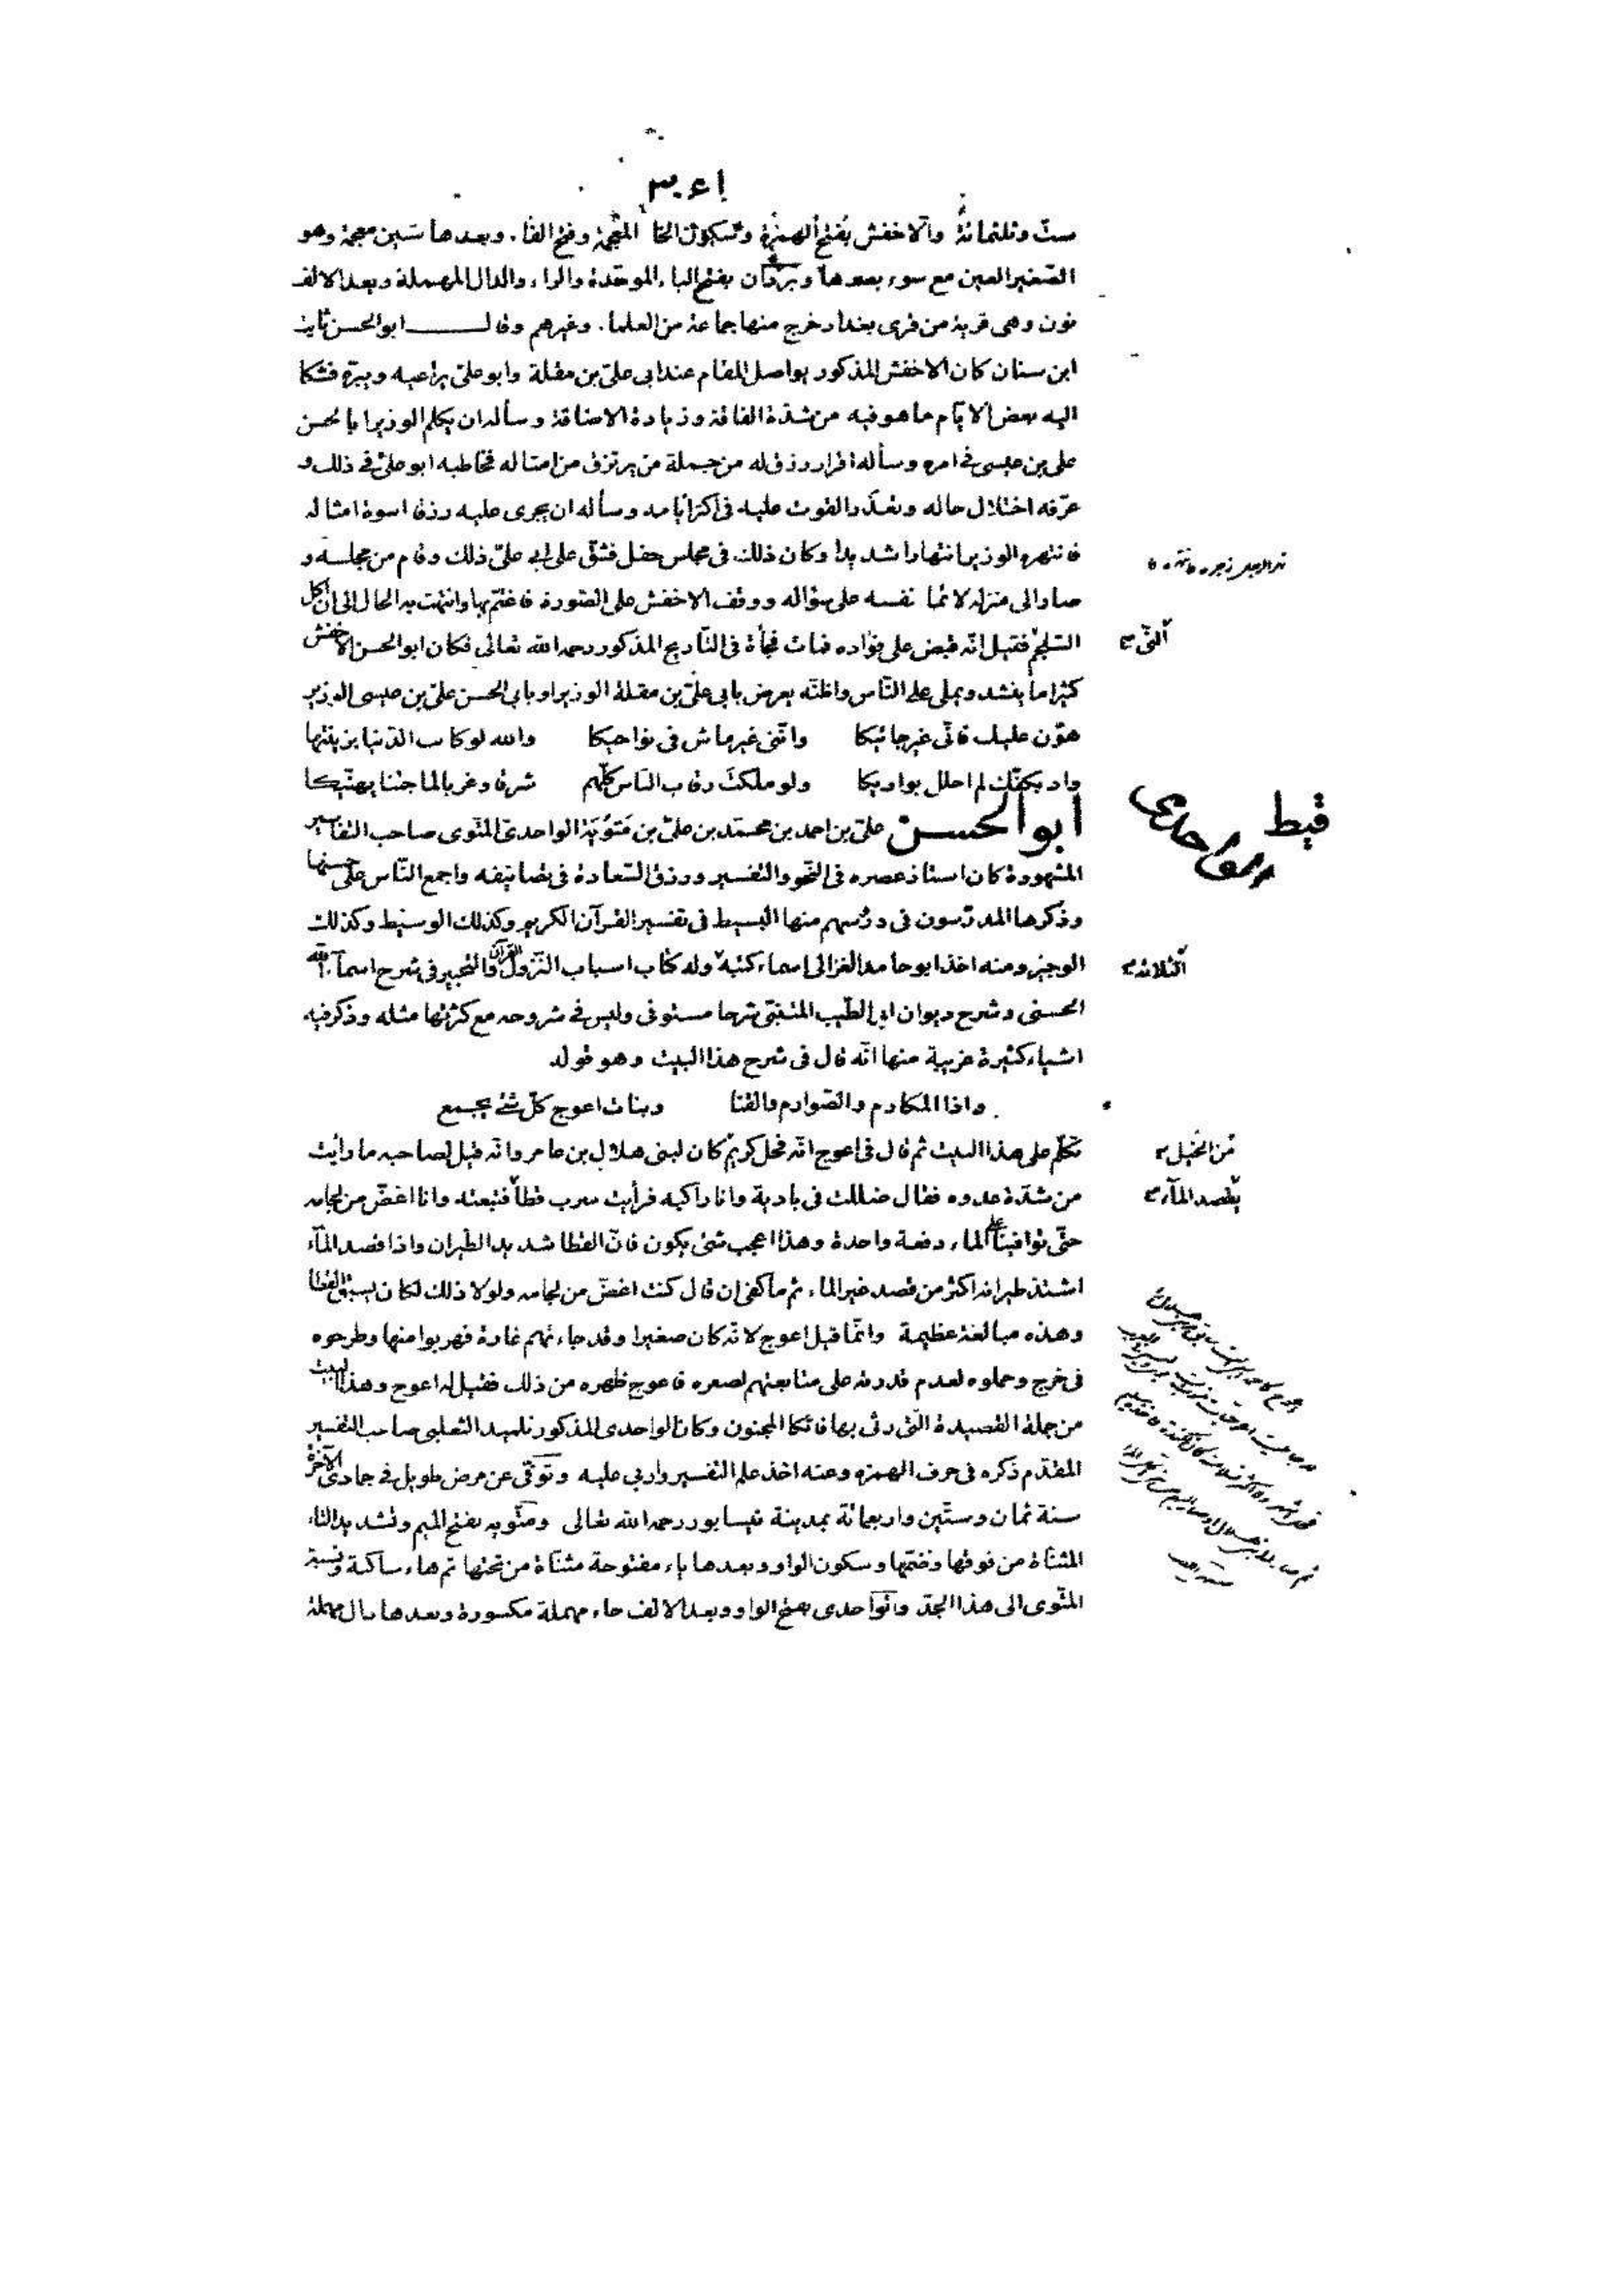 ٣٤١
ستّ وثلثمائة والاخفش بفتح الهمزة وسكون الخاء المعجمة وفتح الفاء وبعدها شين معجمة وهو
الصّغير العين مع سوء بصرها وبردان بفتح الباء الموحّدة والراء والدال المهملة وبعد الالف
نون وهى قرية من قرى بغداد خرج منها جماعة من العلماء وغيرهم وقال ابو الحسن ثابت
ابن سنان كان الاخفش المذكور يواصل المقام عند ابى علىّ بن مقلة وابو علىّ يراعيه ويبرّه فشكا
اليه بعض الايّام ما هو فيه من شدّة الفاقة وزيادة الاضاقة وسأله ان يكلم الوزير ابا لحسن
على بن عيسى فى امره وسأله اقرار رزق له من جملة من يرتزق من امثاله فخاطبه ابو علىّ فى ذلك و
عرّفه اختلال حاله وتعذّر القوت عليه فى اكثر ايامه وسأله ان يجرى عليه رزقا اسوة امثاله
فانتهره الوزير انتهارا شديدا وكان ذلك فى مجلس حفل فشقّ على ابى علىّ ذلك وقام من مجلسه و
صار الى منزله لائما نفسه على سؤاله ووقف الاخفش على الصّورة فاغتمّ بها وانتهت به الحال الى ان اكل
السّلجم فقيل انّه قبض على فؤاده فمات فجأة فى التّاريخ المذكور رحمه الله تعالى فكان ابو الحسن الاخفش
النّى
كثيرا ما ينشد ويملى على النّاس واظنّه يعرض بابى علىّ بن مقلة الوزير او بابى الحسن علىّ بن عيسى الوزير
هوّن عليك فانّى غير جائيكا وانّنى غير ماش فى نواحيكا والله لو كانت الدّنيا بزينتها
واد بكفّك لم احلل بواديكا ولو ملكت رقاب النّاس كلّهم شرقا وغربا لما جئنا نهنّيكا
ابو الحسن علىّ بن احمد بن محمّد بن علىّ بن مَتّويَة الواحدىّ المتّوى صاحب التفاسير
قيط
الواحدى
المشهورة كان استاذ عصره فى النّحو والتفسير ورزق السّعادة فى تصانيفه واجمع النّاس على حسنها
وذكرها المدرّسون فى دروسهم منها البسيط فى تفسير القرآن الكريم وكذلك الوسيط وكذلك
الوجيز ومنه اخذ ابو حامد الغزالى اسماء كتبه وله كتاب اسباب النّزول القرآن والتحبير فى شرح اسماء الله
الثلاثة
الحسنى وشرح ديوان ابى الطّيب المتنبّى شرحا مستوفى وليس فى شروحه مع كثرتها مثله وذكر فيه
اشياء كثيرة غريبة منها انّه قال فى شرح هذا البيت وهو قوله
واذا المكارم والصّوارم والقنا وبنات اعوج كلّ شئ يجمع
تكلّم على هذا البيت ثم قال فى اعوج انّه فحل كريم كان لبنى هلال بن عامر وانّه قيل لصاحبه ما رأيت
من الخيل
من شدّة عدوه فقال ضللت فى بادية وانا راكبه فرأيت سرب قطا فتبعته وانا اغضّ من لجامه
يقصد المآء
حتّى توافينا على الماء دفعة واحدة وهذا اعجب شئ يكون فانّ القطا شديد الطيران واذا قصد المآء
اشتدّ طيرانه اكثر من قصد غير الماء ثم ما كفى ان قال كنت اغضّ من لجامه ولولا ذلك لكان يسبق القطا
وهذه مبالغة عظيمة وانّما قيل اعوج لانّه كان صغيرا وقد جاءتهم غارة فهربوا منها وطرحوه
فى خرج وحملوه لعدم قدرته على متابعتهم لصغره فاعوج ظهره من ذلك فقيل له اعوج وهذا البيت
من جملة القصيدة الّتى رثى بها فاتكا المجنون وكان الواحدى المذكور تلميذ الثعلبى صاحب التفسير
المقدّم ذكره فى حرف الهمزه وعنه اخذ علم التفسير واربى عليه وتوفّى عن مرض طويل فى جمادى الآخرة
سنة ثمان وستّين واربعمائة بمدينة نيسابور رحمه الله تعالى ومتّويه بفتح الميم وتشديد التاء
المثنّاة من فوقها وضمّها وسكون الواو وبعدها ياء مفتوحة مثنّاة من تحتها ثم هاء ساكنة ونسبة
المتّوى الى هذا الجدّ والواحدى بفتح الواو وبعد الالف حاء مهملة مكسورة وبعدها دال مهملة